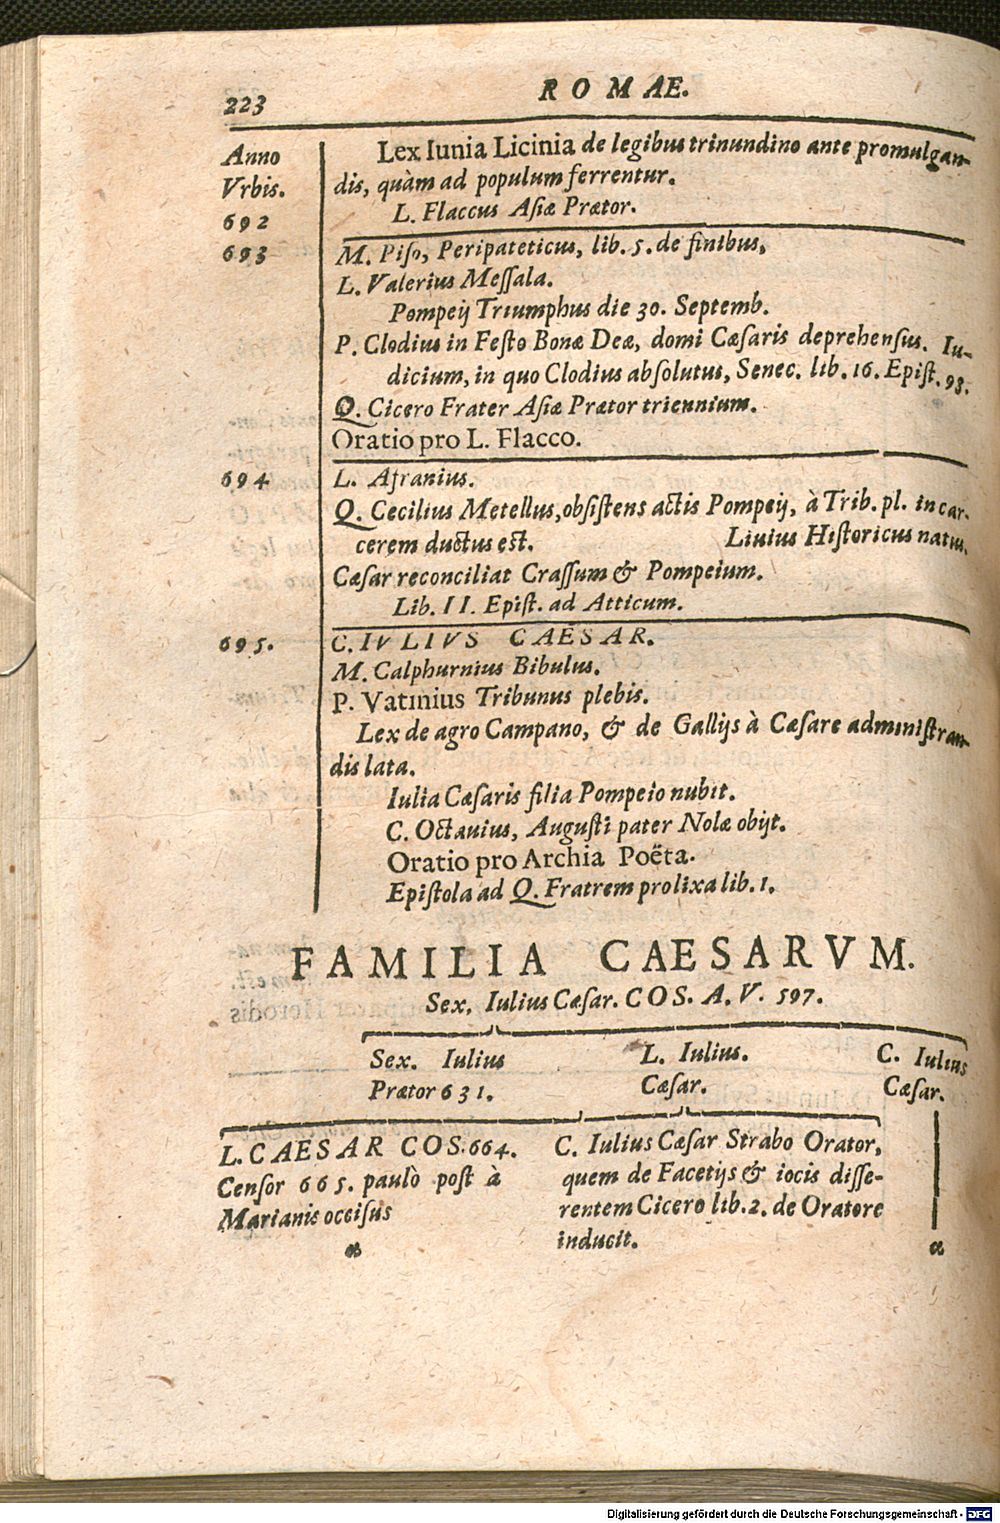 223
ROMAE.
Anno
Vrbis.
692
Lex Iunia Licinia de legibus trinundino ante promulgan-
dis, quàm ad populum ferrentur.
L. Flaccus Asiæ Prætor.
693
M. Piso, Peripateticus, lib. 5. de finibus,
L. Valerius Messala.
Pompeij Triumphus die 30. Septemb.
P. Clodius in Festo Bonæ Deæ, domi Cæsaris deprehensus. Iu-
dicium, in quo Clodius absolutus, Senec. lib. 16. Epist. 98.
Q. Cicero Frater Asiæ Prætor triennium.
Oratio pro L. Flacco.
694
L. Afranius.
Q. Cecilius Metellus, obsistens actis Pompeij, à Trib. pl. in car-
cerem ductus est. Liuius Historicus natus.
Cæsar reconciliat Crassum & Pompeium.
Lib. II. Epist. ad Atticum.
695.
C. IVLIVS CAESAR.
M. Calphurnius Bibulus.
P. Vatinius Tribunus plebis.
Lex de agro Campano, & de Gallijs à Cæsare administran-
dis lata.
Iulia Cæsaris filia Pompeio nubit.
C. Octauius, Augusti pater Nolæ obijt.
Oratio pro Archia Poëta.
Epistola ad Q. Fratrem prolixa lib. 1.
FAMILIA CAESARVM.
Sex. Iulius Cæsar. COS. A. V. 597.
Sex. Iulius
Prætor 631.
L. Iulius.
Cæsar.
C. Iulius
Cæsar.
L. CAESAR COS. 664.
Censor 665. paulò post à
Marianis occisus
C. Iulius Cæsar Strabo Orator,
quem de Facetijs & iocis disse-
rentem Cicero lib. 2. de Oratore
inducit.
Digitalisierung gefördert durch die Deutsche Forschungsgemeinschaft - DFG